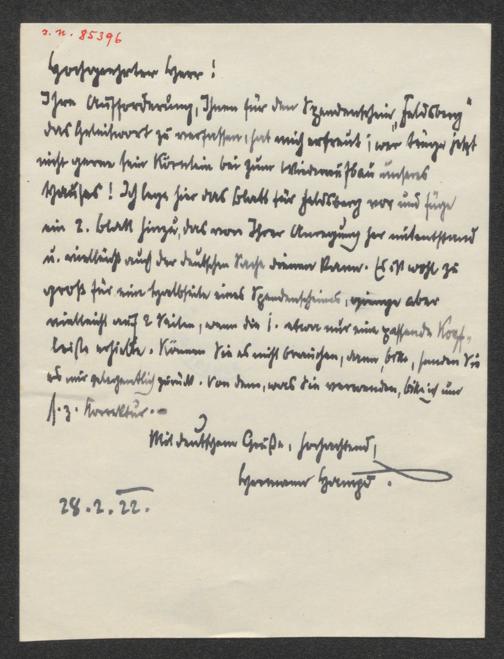 z. n. 85396
Hochgeehrter Herr!
Ihre Aufforderung, Ihnen für den Spendenschein „Feldsberg“
das Geleitwort zu verfassen, hat mich erfreut; wer trüge jetzt
nicht gerne sein Körnlein bei zum Wiederaufbau unseres
Hauses! Ich lege hier das Blatt für Feldsberg vor und füge
ein 2. Blatt hinzu, das von Ihrer Anregung her mitentstand
u. vielleicht auch der deutschen Sache dienen kann. Es ist wohl zu
groß für eine Halbseite eines Spendenscheines, ginge aber
vielleicht auf 2 Seiten, wenn die 1. etwa nur eine passende Kopf-
leiste erhielte. Können Sie es nicht brauchen, dann, bitte, senden Sie
es mir gelegentlich zurück. Von dem, was Sie verwenden, bitte ich um
s. z. Korrektur. –
Mit deutschem Gruße, hochachtend,
Hermann
28. 2. 22.